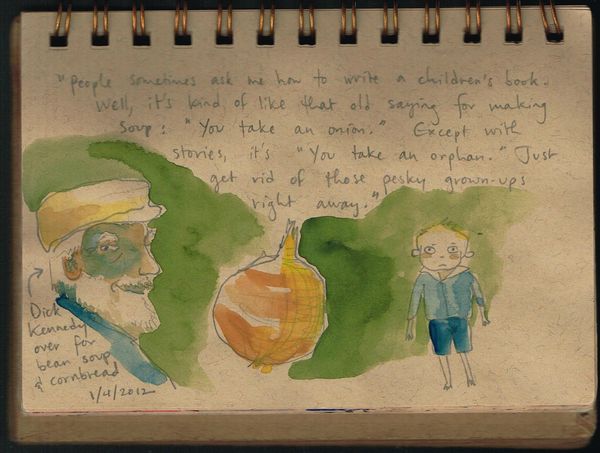 "people sometimes ask me how to write a children's book.
Well, it's kind of like that old saying for making
soup: "You take an onion." Except with
stories, it's "You take an orphan." Just
get rid of those pesky grown-ups
right away."
Dick
Kennedy
over for
bean soup
& cornbread
1/4/2012